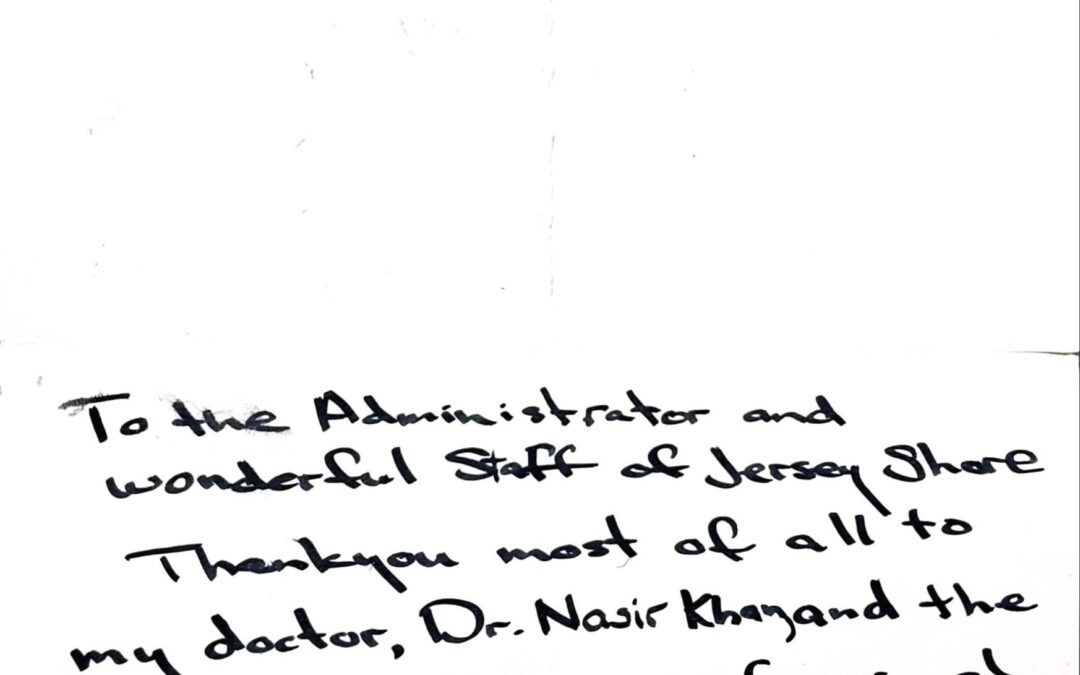 To the Administrator and
wonderful Staff of Jersey Shore
Thankyou most of all to
my doctor, Dr. Nasir Khan and the